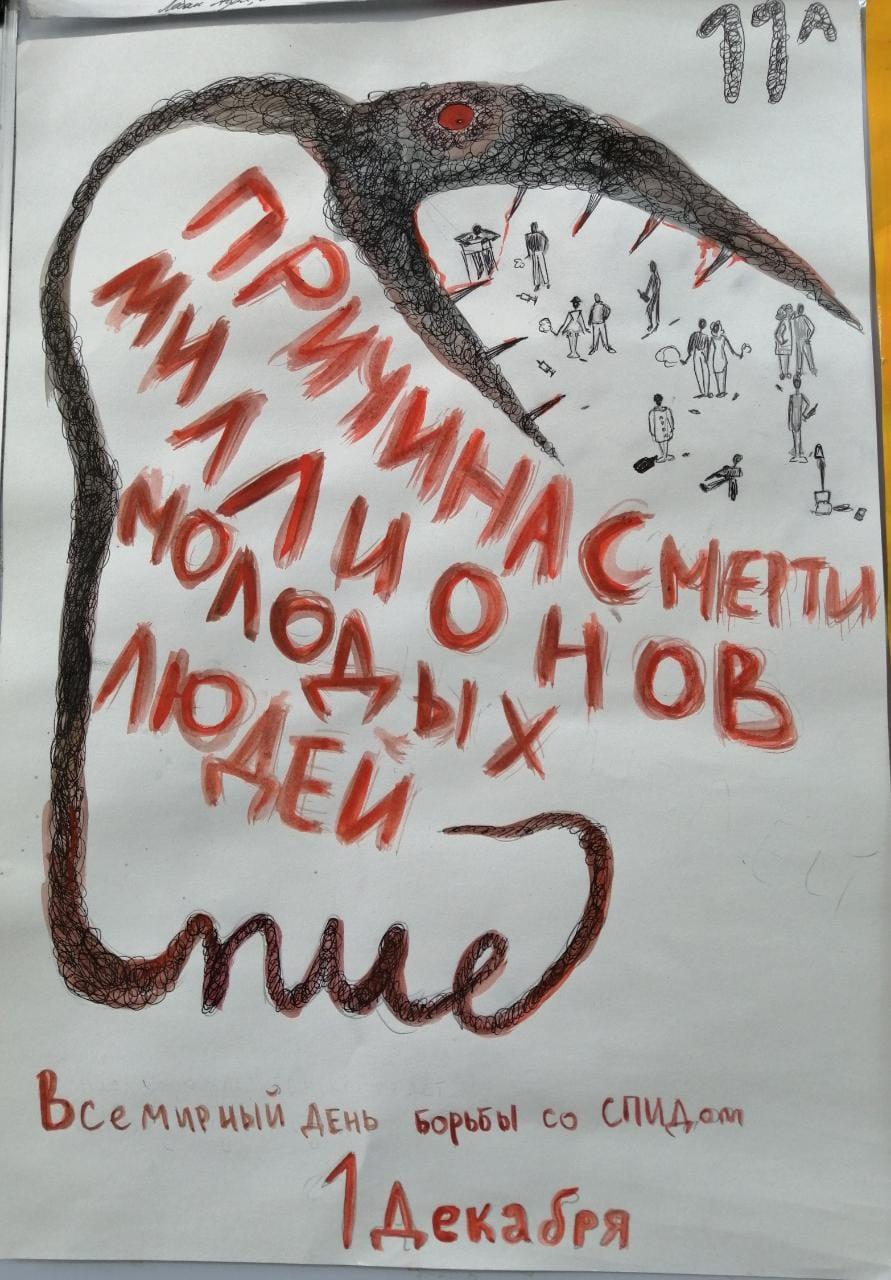 11А
ПРИЧИНА СМЕРТИ
МИЛЛИОНОВ
МОЛОДЫХ
ЛЮДЕЙ
Спид
Всемирный день борьбы со СПИДом
1 Декабря